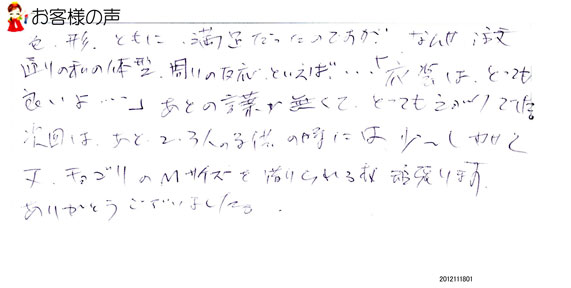 お客様の声
色、形、ともに、満足だったのですが、なんせ注文
通りの私の体型、周りの反応といえば…「衣装は、とっても
良いよ…」あとの言葉が無くて、とっても
次回は、あと2、3人の子供の時には少〜し
丈、チョゴリのMサイズを借りられる様頑張ります。
ありがとうございました。
2012111801